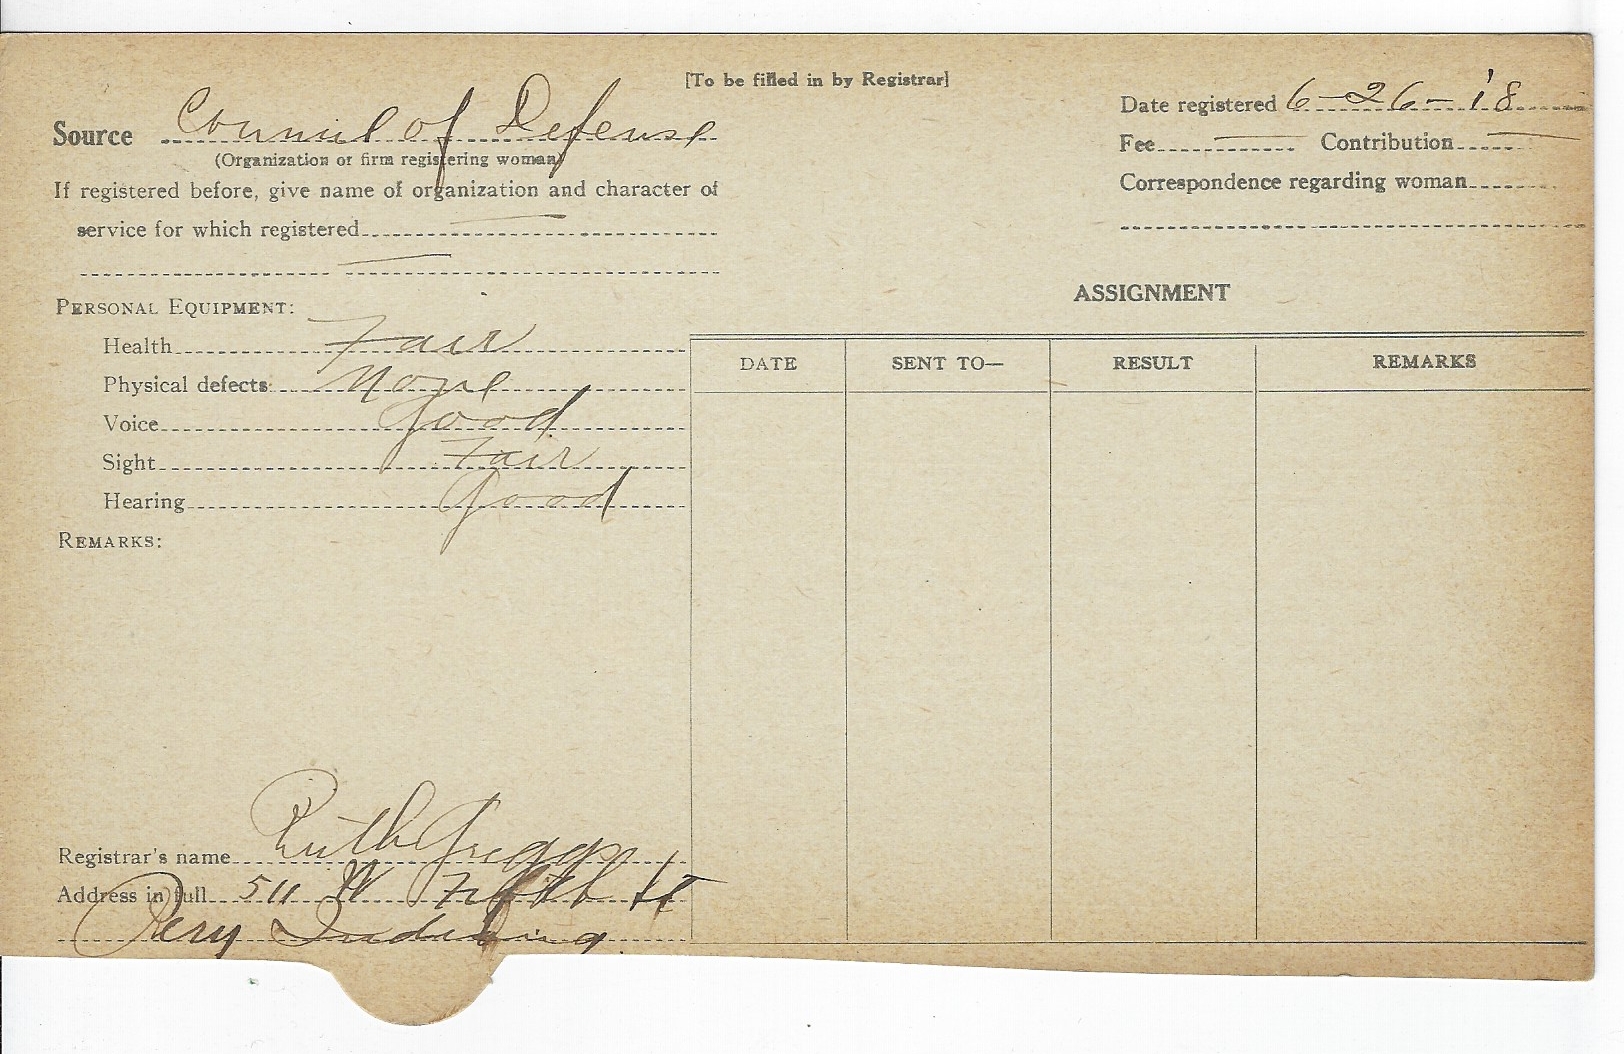 [To be filled in by Registrar]
Source Council of Defense
(Organization or firm registering woman)
If registered before, give name of organization and character of
service for which registered
Date registered 6-26-'18
Fee Contribution
Correspondence regarding woman
PERSONAL EQUIPMENT:
Health Fair
Physical defects None
Voice Good
Sight Fair
Hearing Good
REMARKS:
ASSIGNMENT
DATE SENT TO— RESULT REMARKS
Registrar's name Ruth Griggs
Address in full 511 W Fifth St
Peru Indiana